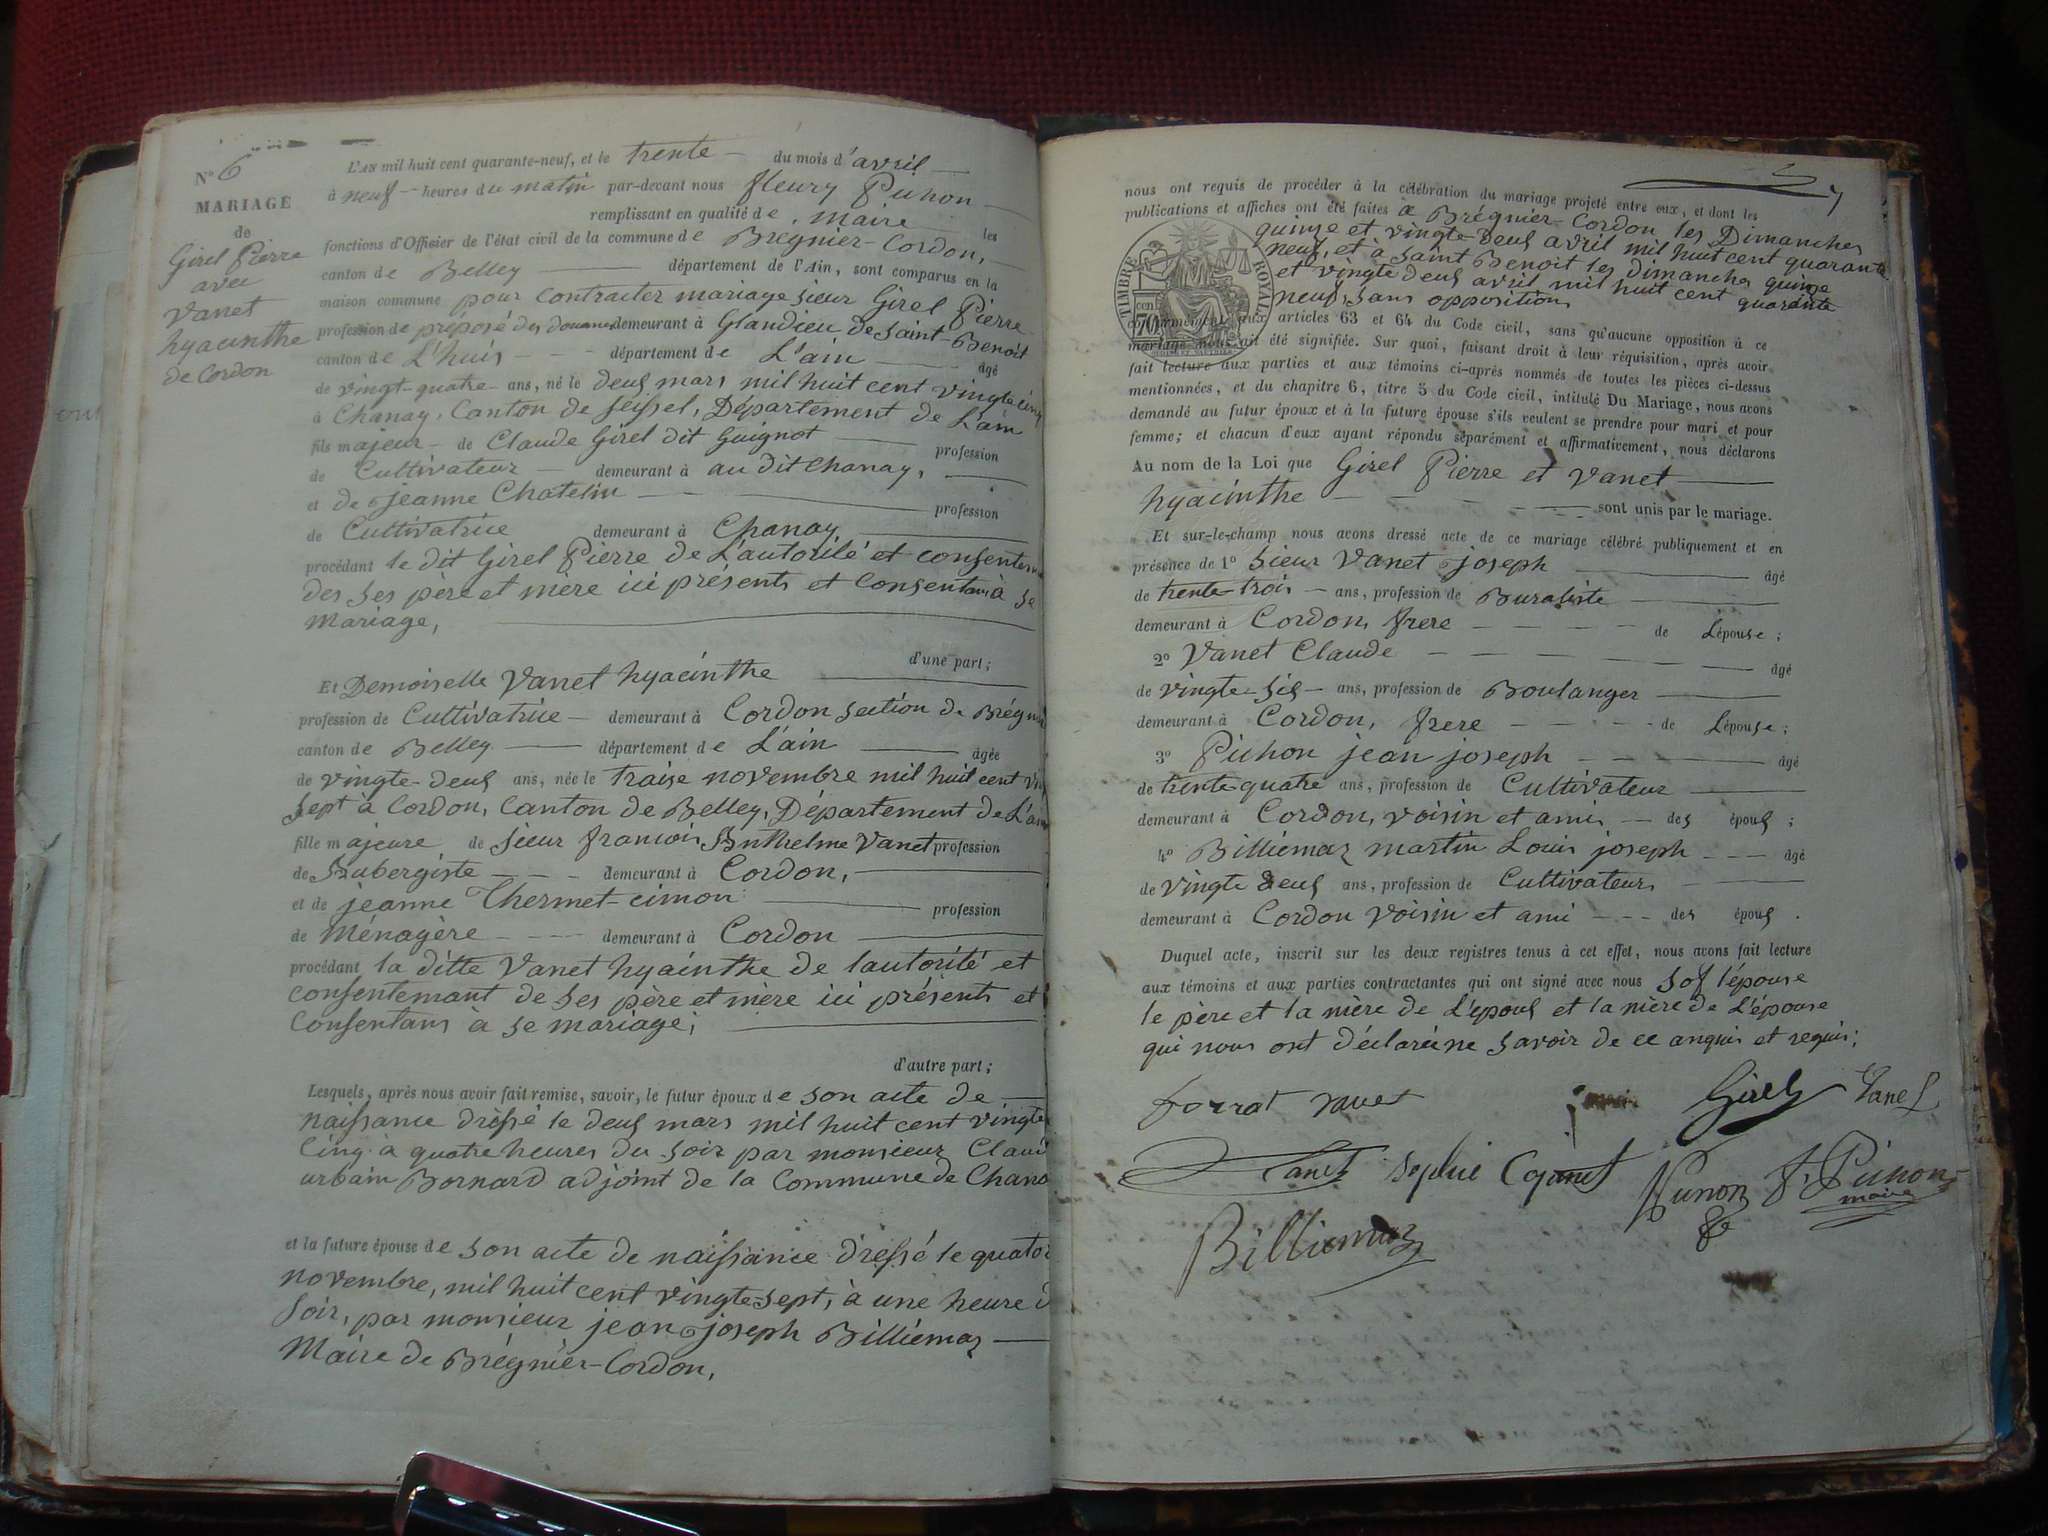 N° 6
MARIAGE
de
Girel Pierre
avec
Vanet
hyacinthe
de Cordon
L'AN mil huit cent quarante-neuf, et le trente du mois d'avril
à neuf heures du matin par-devant nous fleury Pichon
remplissant en qualité de maire les
fonctions d'Officier de l'état civil de la commune de Bregnier-Cordon,
canton de Belley département de l'Ain, sont comparus en la
maison commune pour contracter mariage sieur Girel Pierre
profession de préposé des douanes demeurant à Glandieu de Saint-Benoit
canton de L'huis département de L'ain âgé
de vingt-quatre ans, né le deus mars mil huit cent vingte cinq
à Chanay, Canton de Seissel, Département de L'ain
fils majeur de Claude Girel dit Guignot profession
de Cultivateur demeurant à au dit Chanay,
et de jeanne Chatelin profession
de Cultivatrice demeurant à Chanay
procédant le dit Girel Pierre de L'autorité et
des ses père et mère ici présents et Consentans à se
mariage,
d'une part;
Et Demoiselle Vanet hyacinthe
profession de Cultivatrice demeurant à Cordon section de
canton de Belley département de L'ain âgée
de vingte-deus ans, née le traise novembre mil huit cent
sept à Cordon, Canton de Belley, Département de L'ain
fille majeure de sieur francois Anthelme Vanet profession
de Aubergiste demeurant à Cordon,
et de jeanne Thermet-cimon profession
de Ménagère demeurant à Cordon
procédant la ditte Vanet hyacinthe de lautorité et
consentemant de ses père et mère ici présents et
Consentans à se mariage;
d'autre part;
Lesquels, après nous avoir fait remise, savoir, le futur époux de son acte de
naissance dressé le deus mars mil huit cent vingte
cinq à quatre heures du soir par monsieur
urbain Bornard adjoint de la Commune de
et la future épouse de son acte de naissance dressé le
novembre, mil huit cent vingte-sept, à une heure
soir, par monsieur jean joseph Billiemaz
Maire de Brégnier-Cordon,
7
nous ont requis de procéder à la célébration du mariage projeté entre eux, et dont les
publications et affiches ont été faites a Brégnier-Cordon les Dimanches
quinze et vingte deus avril mil huit cent quarante
neuf, et à Saint Benoit les dimanches quinze
et vingte deus avril mil huit cent quarante
neuf, sans opposition
TIMBRE ROYAL
70
conformément aux articles 63 et 64 du Code civil, sans qu'aucune opposition à ce
mariage nous ait été signifiée. Sur quoi, faisant droit à leur réquisition, après avoir
fait lecture aux parties et aux témoins ci-après nommés de toutes les pièces ci-dessus
mentionnées, et du chapitre 6, titre 5 du Code civil, intitulé Du Mariage, nous avons
demandé au futur époux et à la future épouse s'ils veulent se prendre pour mari et pour
femme; et chacun d'eux ayant répondu séparément et affirmativement, nous déclarons
Au nom de la Loi que Girel Pierre et Vanet
hyacinthe sont unis par le mariage.
Et sur-le-champ nous avons dressé acte de ce mariage célébré publiquement et en
présence de 1° sieur Vanet joseph âgé
de trente-trois ans, profession de Buraliste
demeurant à Cordon, frere de Lépouse;
2° Vanet Claude âgé
de vingte-sis ans, profession de Boulanger
demeurant à Cordon, frere de Lépouse;
3° Pichon jean joseph âgé
de trente quatre ans, profession de Cultivateur
demeurant à Cordon, voisin et ami des épous;
4° Billiémaz martin Louis joseph âgé
de vingte deus ans, profession de Cultivateur,
demeurant à Cordon voisin et ami des épous.
Duquel acte, inscrit sur les deux registres tenus à cet effet, nous avons fait lecture
aux témoins et aux parties contractantes qui ont signé avec nous sof l'épouse
le père et la mère de L'épous et la mère de L'épouse
qui nous ont déclaré ne savoir de ce anquis et requis;
forrat vanet Girel Vanet
Vanet Sophie Pichon F. Pichon
maire
Billiemaz